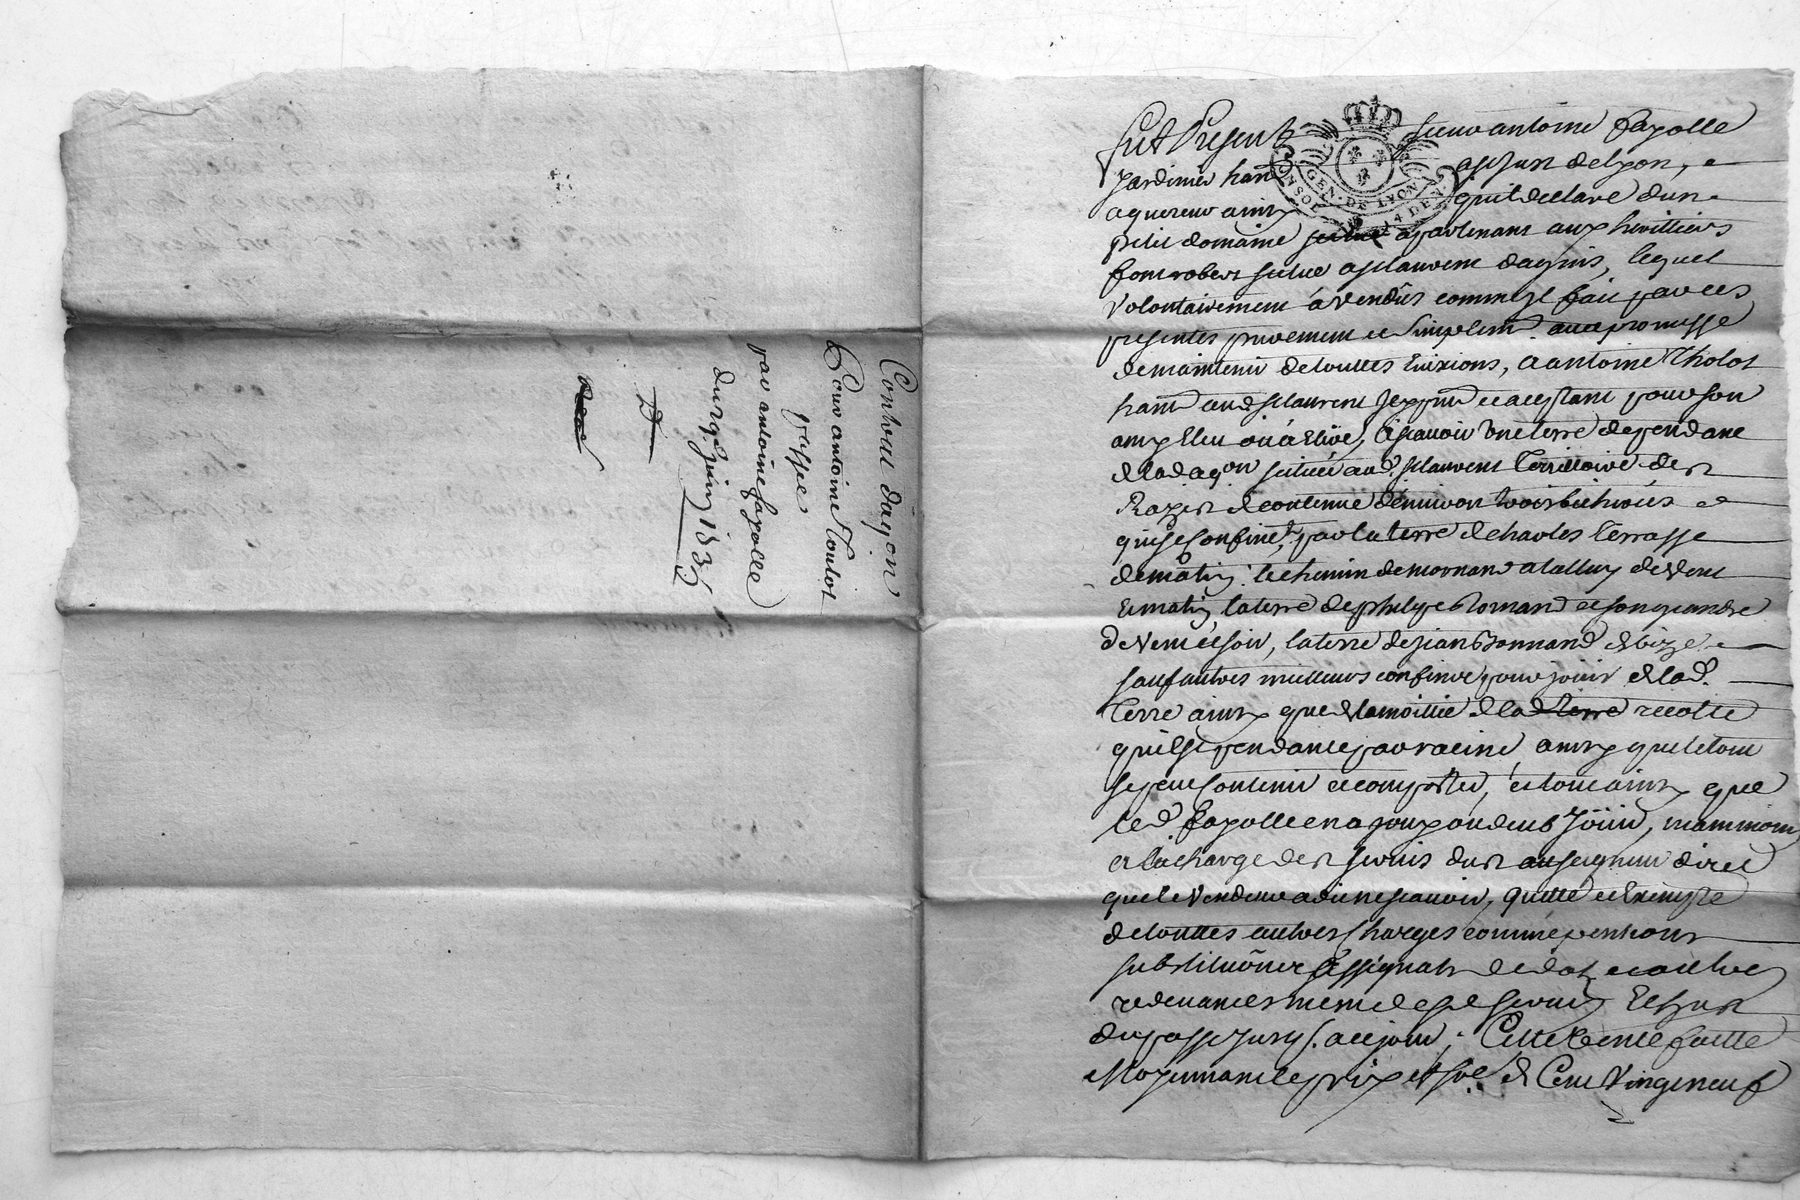 Contrat dacqon
Pour antoine Toulot
passe
par antoine fayolle
du 19e juin 1735
Fut Present sieur antoine fayolle
Jardinier hant a st just de lyon,
aquereur ainsy quil declare dun
petit domaine apartenant aux heritiers
situé a st laurent dagnis, lequel
volontairement a vendu comme il fait par ces
presentes purement et simplemt avec promesse
de maintenir de touttes evixions, a antoine Tholot
hant aud st laurent icy pnt et aceptant pour son
amy eleu ou a elire, ascavoir une terre dependante
de lad aqon située aud st laurent territoire des
Razes de contenue denviron trois bicherées
qui se confine, par la terre de charles terrasse
de matin, le chemin de mornand a de vent
et matin, la terre de philipe et son gendre
de vent et soir, la terre de jean Bonnand de bize
sauf autres meilleurs confins pour jouir de lad.
terre ainsy que de la moitié de la recolte
quil est pendante par racine, ainsy que le tout
se peut contenir et comporter, et tout ainsy que
led fayolle en a joui ou deub jouir,
et a la charge des servis dus au seigneur direct
que le vendeur a dit ne scavoir, quitte et exempte
de touttes autres charges comme pentions
substitutions assignats de dot et autres
redevances meme des servis echus
du passé jusqs. a ce jour, Cette vente faitte
Moyennant le prix et some de Cent vingt neuf
GEN. DE LYON
14 DEN.